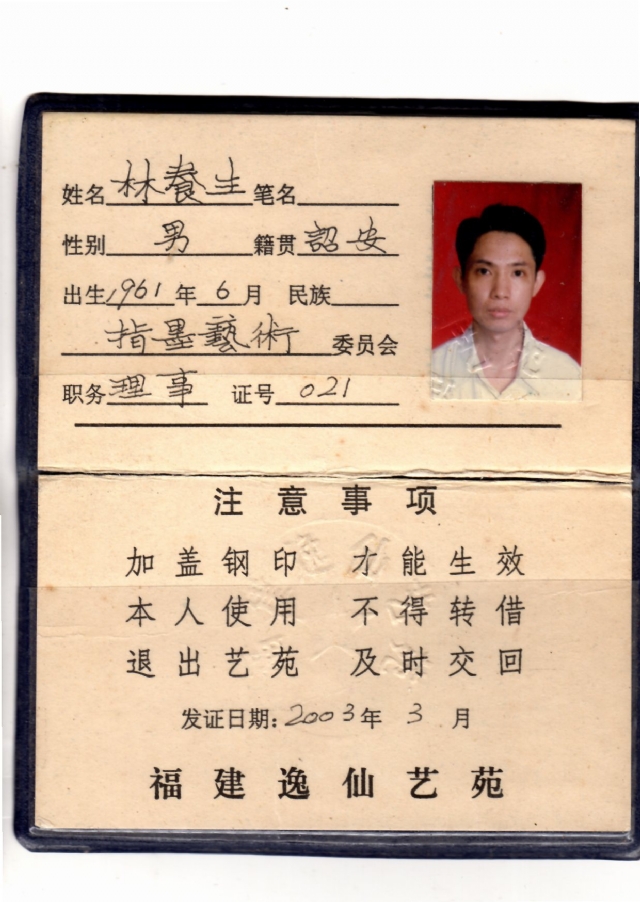 姓名 林養生 笔名
性别 男 籍贯 詔安
出生 1961 年 6 月 民族
指墨藝術 委员会
职务 理事 证号 021
注意事项
加盖钢印 才能生效
本人使用 不得转借
退出艺苑 及时交回
发证日期: 2003 年 3 月
福建逸仙艺苑